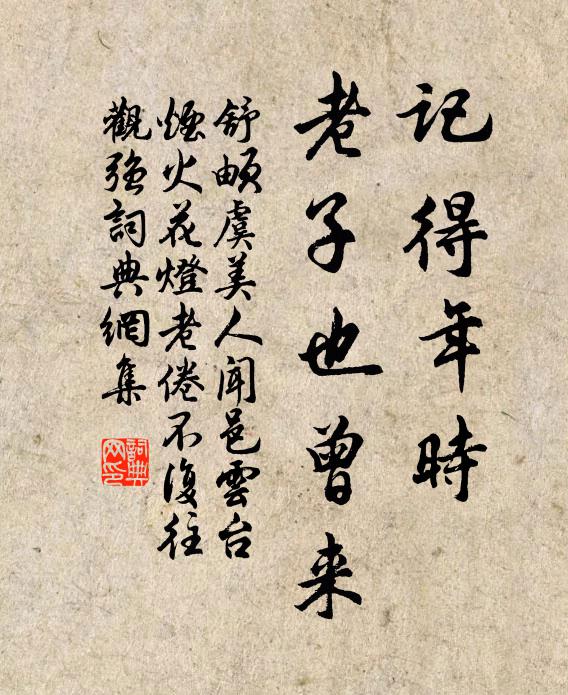 記得年時
老子也曾来
舒頔虞美人聞邑雲台
煙火花燈老倦不復往
觀強詞典網集
詞典
网印